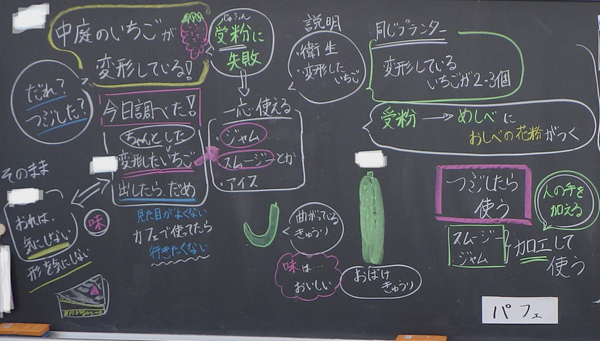 中庭のいちごが
変形している!
じゅふん
受粉に
失敗
説明
・衛生
・変形した
いちご
同じプランター
変形している
いちごが2・3個
受粉 → めしべに
おしべの花粉がつく
だれ?
つぶした?
今日調べた!
ちゃんとした
変形したいちご
出したら、だめ
見た目がよくない
カフェで使ってたら
行きたくない
一応・使える
・ジャム
・スムージーとか
・アイス
そのまま
おれは、
気にしない
形を気にしない
味
曲がっている
きゅうり
味は…
おいしい
おばけ
きゅうり
つぶしたら
使う
人の手を
加える
スムージー
ジャム
加工して
使う
パフェ